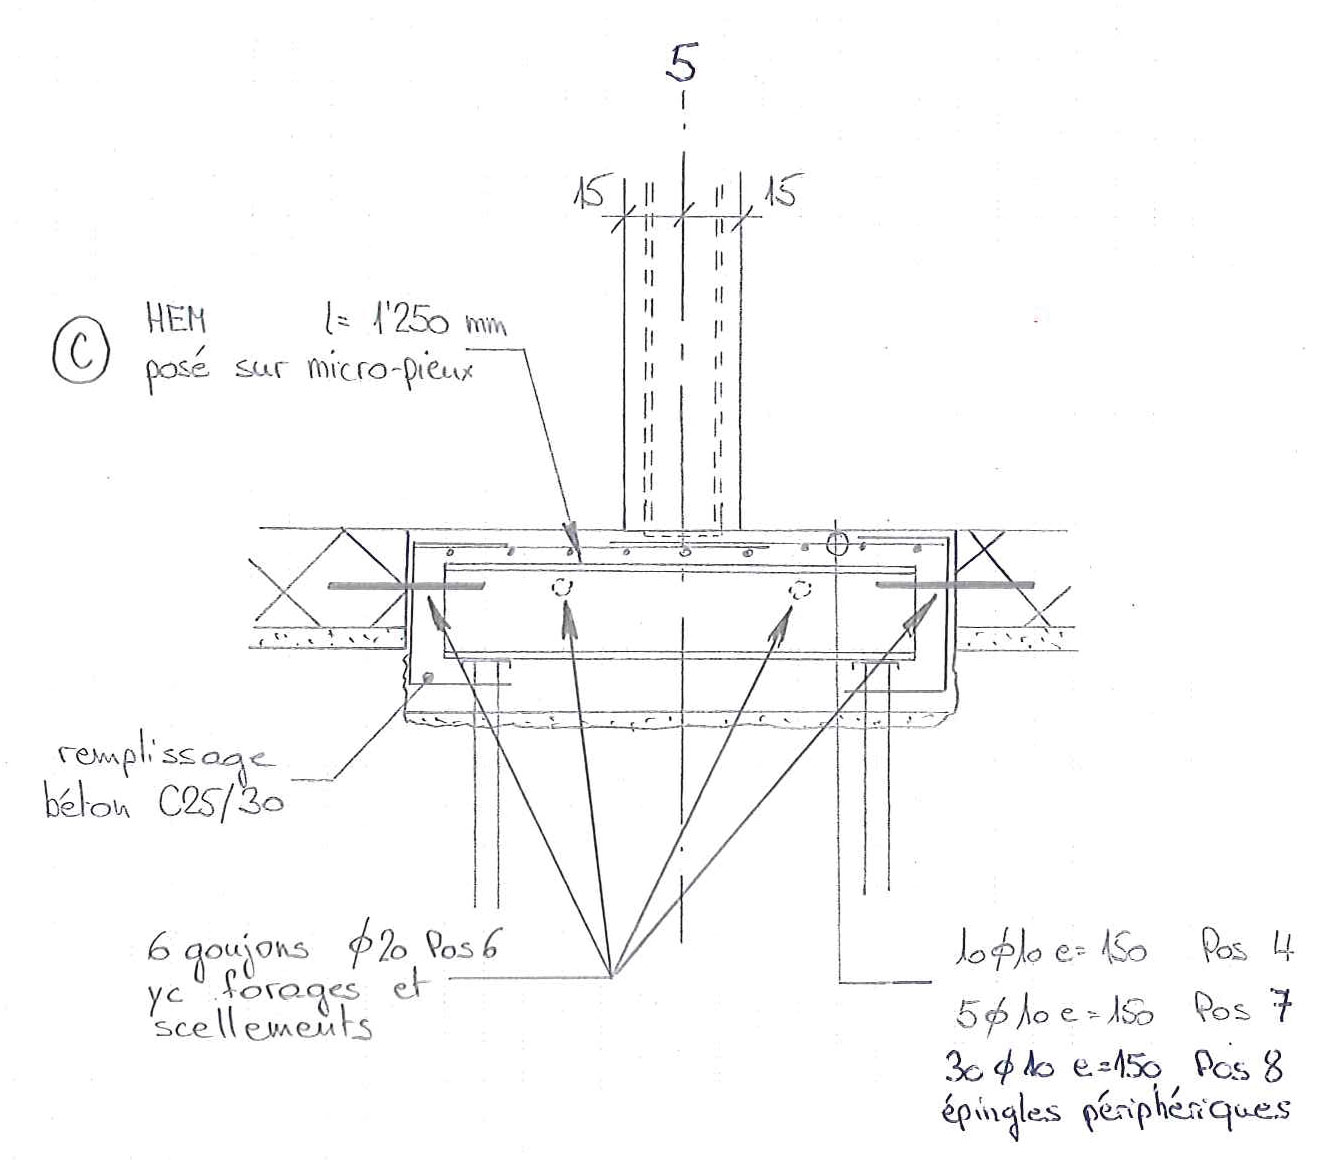 5
15 15
HEM l= 1'250 mm
C
posé sur micro-pieux
remplissage
béton C25/30
6 goujons ϕ20 Pos 6
yc forages et
scellements
10ϕ10 e=150 Pos 4
5ϕ10 e=150 Pos 7
30ϕ10 e=150 Pos 8
épingles périphériques